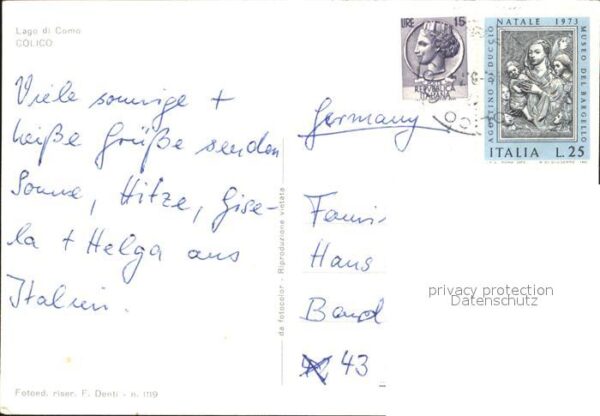 Lago di Como
COLICO
Viele sonnige +
heiße Grüße senden
Sonne, Hitze, Gise-
la + Helga aus
Italien.
Fotoed. riser. F. Denti - n. 1119
da fotocolor - Riproduzione vietata
LIRE 15
REPVBBLICA
ITALIANA
NATALE 1973
AGOSTINO DI DUCCIO
MUSEO DEL BARGELLO
ITALIA L.25
Germany
Hans
43
privacy protection
Datenschutz